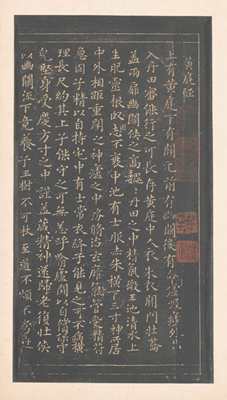 黃庭經
上有黃庭下有關元前有幽闕後有命門噓吸廬外出
入丹田審能行之可長存黃庭中人衣朱衣關門壯籥
蓋兩扉幽闕俠之高魏魏丹田之中精氣微玉池清水上
生肥靈根堅志不衰中池有士服赤朱橫下三寸神所居
中外相距重閉之神廬之中務脩治玄膺氣管受精符
急固子精以自持宅中有士常衣絳子能見之可不病橫
理長尺約其上子能守之可無恙呼噏廬間以自償保守
完堅身受慶方寸之中謹蓋藏精神還歸老復壯俠
以幽闕流下竟養子玉樹不可杖至道不煩不旁迕